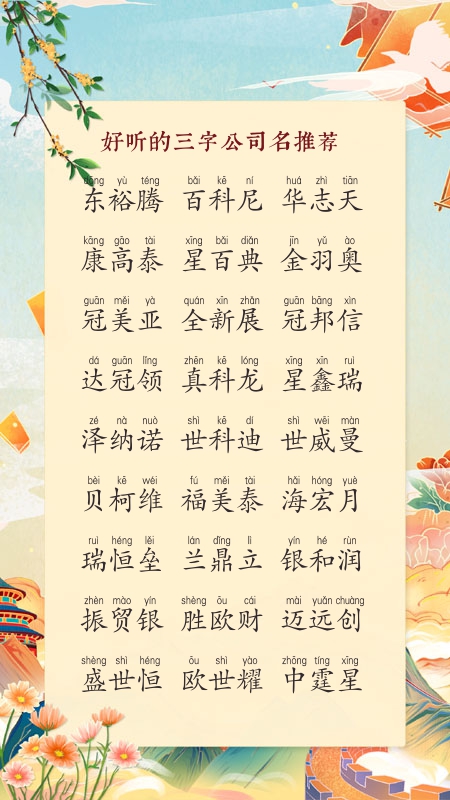 好听的三字公司名推荐
dōng yù téng bǎi kē ní huá zhì tiān
东裕腾 百科尼 华志天
kāng gāo tài xīng bǎi diǎn jīn yǔ ào
康高泰 星百典 金羽奥
guān měi yà quán xīn zhǎn guān bāng xìn
冠美亚 全新展 冠邦信
dá guān lǐng zhēn kē lóng xīng xīn ruì
达冠领 真科龙 星鑫瑞
zé nà nuò shì kē dí shì wēi màn
泽纳诺 世科迪 世威曼
bèi kē wéi fú měi tài hǎi hóng yuè
贝柯维 福美泰 海宏月
ruì héng lěi lán dǐng lì yín hé rùn
瑞恒垒 兰鼎立 银和润
zhèn mào yín shèng ōu cái mài yuǎn chuàng
振贸银 胜欧财 迈远创
shèng shì héng ōu shì yào zhōng tíng xīng
盛世恒 欧世耀 中霆星